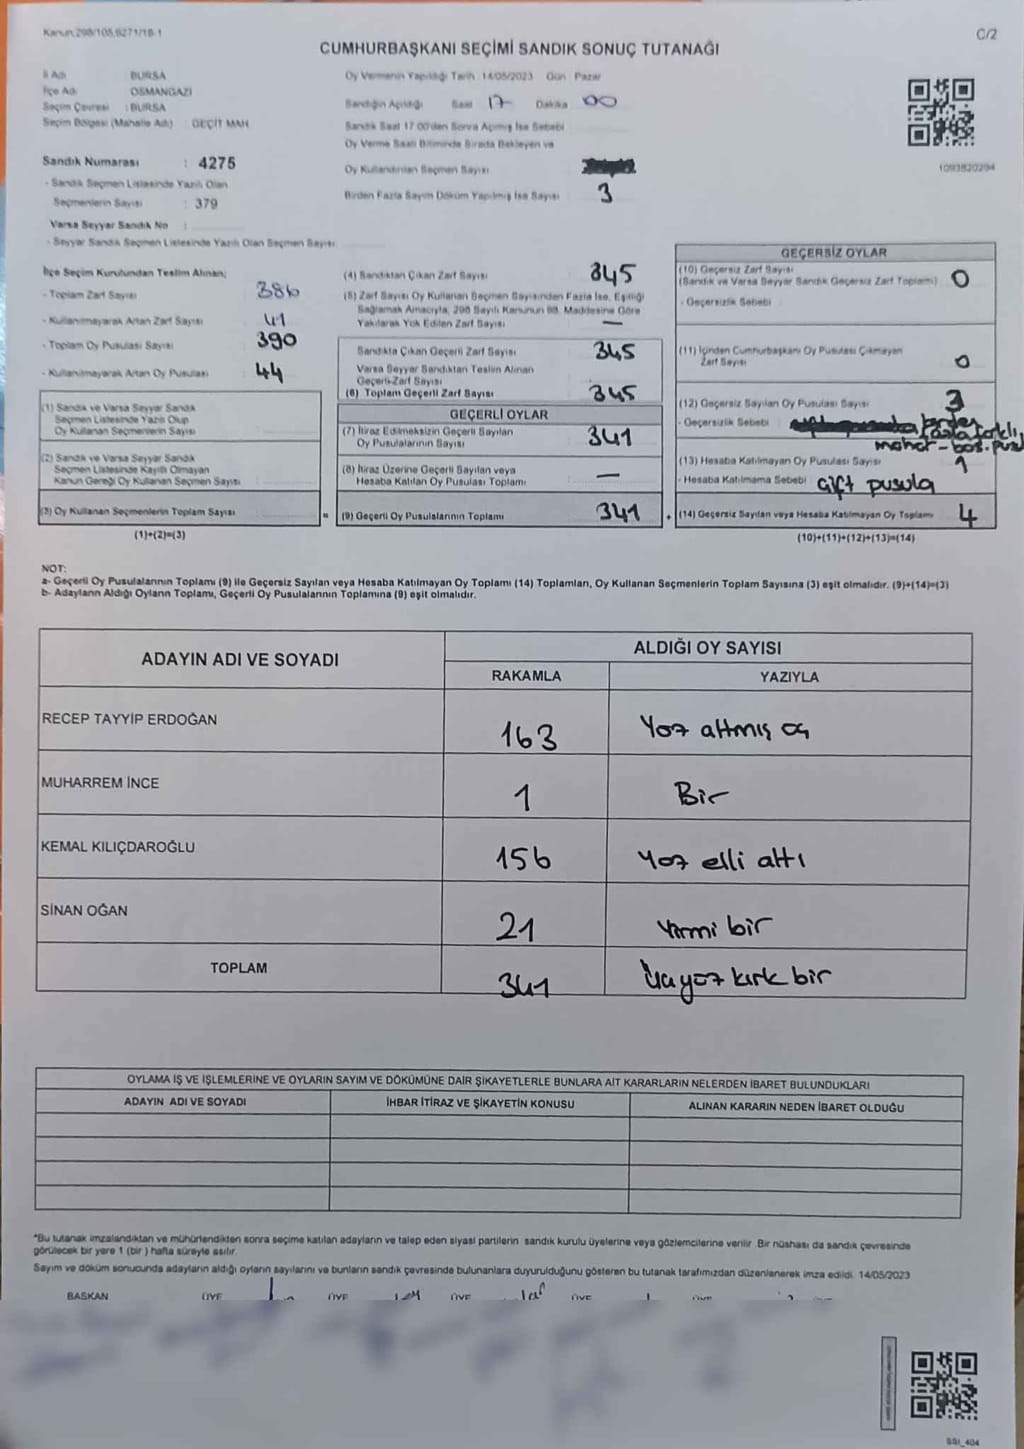 Kanun:298/105,6271/18-1
C/2
CUMHURBAŞKANI SEÇİMİ SANDIK SONUÇ TUTANAĞI
İl Adı BURSA
İlçe Adı OSMANGAZİ
Seçim Çevresi : BURSA
Seçim Bölgesi (Mahalle Adı) : GEÇİT MAH
Oy Vermenin Yapıldığı Tarih 14/05/2023 Gün : Pazar
Sandığın Açıldığı Saat 17 Dakika 00
Sandık Saat 17:00'den Sonra Açılmış İse Sebebi
Oy Verme Saati Bitiminde Sırada Bekleyen ve
Oy Kullandırılan Seçmen Sayısı
Birden Fazla Sayım Döküm Yapılmış İse Sayısı 3
1093820294
Sandık Numarası : 4275
- Sandık Seçmen Listesinde Yazılı Olan
Seçmenlerin Sayısı : 379
Varsa Seyyar Sandık No :
- Seyyar Sandık Seçmen Listesinde Yazılı Olan Seçmen Sayısı
İlçe Seçim Kurulundan Teslim Alınan;
- Toplam Zarf Sayısı 386
- Kullanılmayarak Artan Zarf Sayısı 41
- Toplam Oy Pusulası Sayısı 390
- Kullanılmayarak Artan Oy Pusulası 44
(1) Sandık ve Varsa Seyyar Sandık
Seçmen Listesinde Yazılı Olup
Oy Kullanan Seçmenlerin Sayısı
(2) Sandık ve Varsa Seyyar Sandık
Seçmen Listesinde Kayıtlı Olmayan
Kanun Gereği Oy Kullanan Seçmen Sayısı
(3) Oy Kullanan Seçmenlerin Toplam Sayısı
(1)+(2)=(3)
(4) Sandıktan Çıkan Zarf Sayısı 345
(5) Zarf Sayısı Oy Kullanan Seçmen Sayısından Fazla İse, Eşitliği
Sağlamak Amacıyla, 298 Sayılı Kanunun 98. Maddesine Göre
Yakılarak Yok Edilen Zarf Sayısı —
Sandıkta Çıkan Geçerli Zarf Sayısı 345
Varsa Seyyar Sandıktan Teslim Alınan
Geçerli Zarf Sayısı
(6) Toplam Geçerli Zarf Sayısı 345
GEÇERLİ OYLAR
(7) İtiraz Edilmeksizin Geçerli Sayılan
Oy Pusulalarının Sayısı 341
(8) İtiraz Üzerine Geçerli Sayılan veya
Hesaba Katılan Oy Pusulası Toplamı —
= (9) Geçerli Oy Pusulalarının Toplamı 341
GEÇERSİZ OYLAR
(10) Geçersiz Zarf Sayısı
(Sandık ve Varsa Seyyar Sandık Geçersiz Zarf Toplamı) 0
- Geçersizlik Sebebi
(11) İçinden Cumhurbaşkanı Oy Pusulası Çıkmayan
Zarf Sayısı 0
(12) Geçersiz Sayılan Oy Pusulası Sayısı 3
- Geçersizlik Sebebi birden
fazla farklı
mühür-boş.pusu
(13) Hesaba Katılmayan Oy Pusulası Sayısı 1
- Hesaba Katılmama Sebebi Çift pusula
+ (14) Geçersiz Sayılan veya Hesaba Katılmayan Oy Toplamı 4
(10)+(11)+(12)+(13)=(14)
NOT:
a- Geçerli Oy Pusulalarının Toplamı (9) ile Geçersiz Sayılan veya Hesaba Katılmayan Oy Toplamı (14) Toplamları, Oy Kullanan Seçmenlerin Toplam Sayısına (3) eşit olmalıdır. (9)+(14)=(3)
b- Adayların Aldığı Oyların Toplamı, Geçerli Oy Pusulalarının Toplamına (9) eşit olmalıdır.
ADAYIN ADI VE SOYADI
ALDIĞI OY SAYISI
RAKAMLA YAZIYLA
RECEP TAYYİP ERDOĞAN 163 Yüz altmış üç
MUHARREM İNCE 1 Bir
KEMAL KILIÇDAROĞLU 156 Yüz elli altı
SİNAN OĞAN 21 Yirmi bir
TOPLAM 341 Üçyüz kırk bir
OYLAMA İŞ VE İŞLEMLERİNE VE OYLARIN SAYIM VE DÖKÜMÜNE DAİR ŞİKAYETLERLE BUNLARA AİT KARARLARIN NELERDEN İBARET BULUNDUKLARI
ADAYIN ADI VE SOYADI İHBAR İTİRAZ VE ŞİKAYETİN KONUSU ALINAN KARARIN NEDEN İBARET OLDUĞU
*Bu tutanak imzalandıktan ve mühürlendikten sonra seçime katılan adayların ve talep eden siyasi partilerin sandık kurulu üyelerine veya gözlemcilerine verilir. Bir nüshası da sandık çevresinde
görülecek bir yere 1 (bir ) hafta süreyle asılır.
Sayım ve döküm sonucunda adayların aldığı oyların sayılarını ve bunların sandık çevresinde bulunanlara duyurulduğunu gösteren bu tutanak tarafımızdan düzenlenerek imza edildi. 14/05/2023
BAŞKAN ÜYE ÜYE ÜYE ÜYE ÜYE
SSI_404